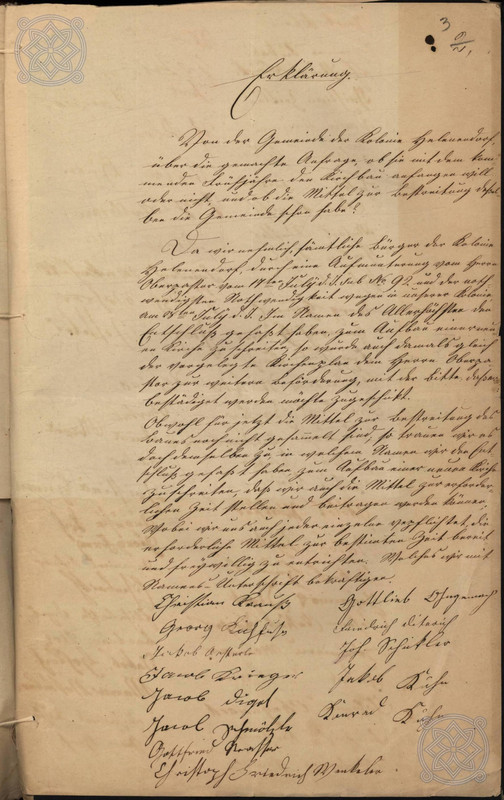 3
Erklärung.
Von der Gemeinde der Kolonie Helenendorf,
über die gemachte Anfrage, ob sie mit dem kom-
menden Frühjahre den Kirchbau anfangen will
oder nicht, und ob die Mittel zur Bestreitung dessel-
ben die Gemeinde schon habe?
Da wir nehmlich, sämtliche Bürger der Kolonie
Helenendorf, durch eine Aufmunterung vom Herrn
Oberpastor vom July d. J. No 92 und der noth-
wendigsten Nothwendigkeit wegen in unserer Kolonie
am July d. J. Im Namen des Allerhöchsten den
Entschluß gefaßt haben, zum Aufbau einer neu-
en Kirche zu schreiten, so wurde auch damals gleich
der vorgelegte Kirchenplan dem Herrn Oberpa-
stor zur weitern Beförderung, mit der Bitte, daß er
bestädiget werden möchte zugeschikt.
Obwohl für jetzt die Mittel zur Bestreitung des
Baues noch nicht gesamelt sind, so trauen wir es
doch demselben zu, in welchem Namen wir den Ent-
schluß gefaßt haben zum Aufbau einer neuen Kirche
zu schreiten, daß wir auch die Mittel zur erforder-
lichen Zeit stellen und beitragen werden können,
wobei wir uns auch jeder einzelne verpflichtet, die
erforderliche Mittel zur bestimten Zeit bereit
und freywillig zu entrichten. Welches wir mit
Namens Unterschrift bekräftigen.
Christian Krauß
Gottlieb
Georg
Friedrich Dieterich
Jakob
Joh. Schükler
Jacob Krieger
Jakob Kühn
Jacob Digel
Konrad Kühn
Jacob Schmölzle
Gottfried
Christoph Friedrich Winkeler.